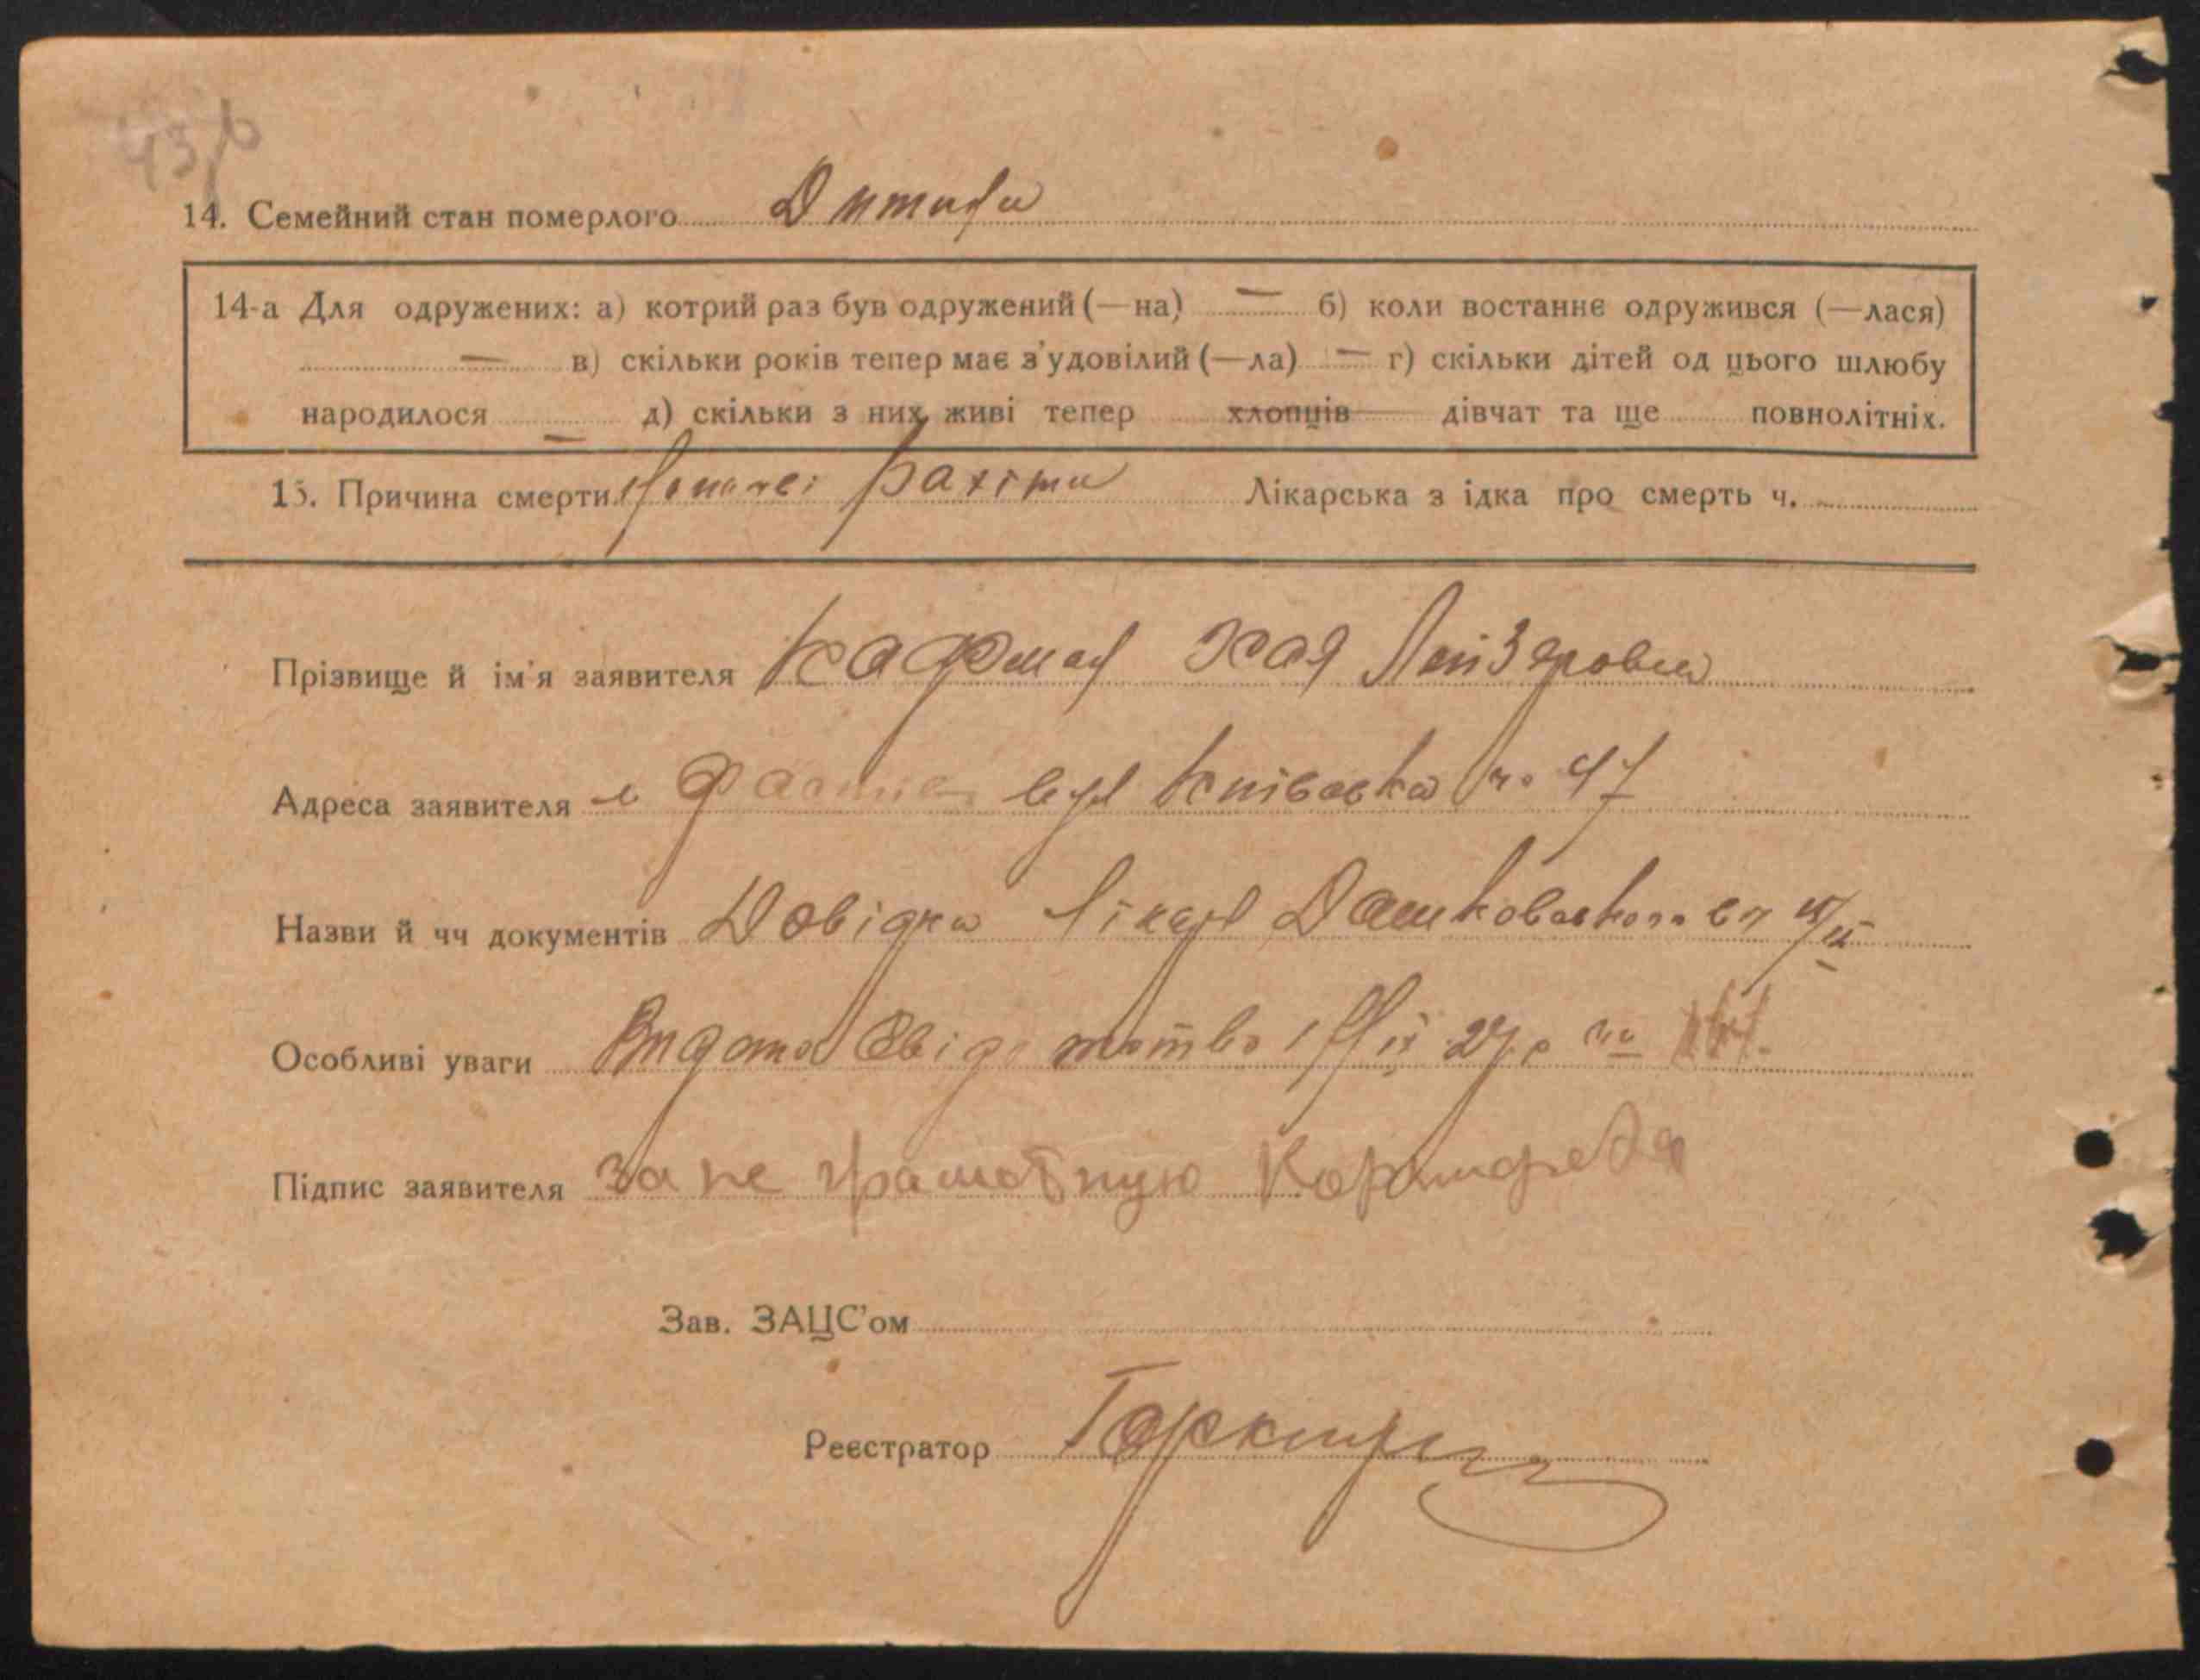 43
14. Семейний стан померлого Дитина
14-а Для одружених: а) котрий раз був одружений (—на) — б) коли востаннє одружився (—лася)
— в) скільки років тепер має з'удовілий (—ла) — г) скільки дітей од цього шлюбу
народилося — д) скільки з них живі тепер хлопців дівчат та ще повнолітніх.
15. Причина смерти Рахіта Лікарська з ідка про смерть ч.
Прізвище й ім'я заявителя Хая Лейзеровна
Адреса заявителя м Фастів вул Київська № 47
Назви й чч документів Довідка лікаря Дашковського
Особливі уваги Видано свідоцтво 27 р №
Підпис заявителя За не грамотную
Зав. ЗАЦС'ом
Реєстратор